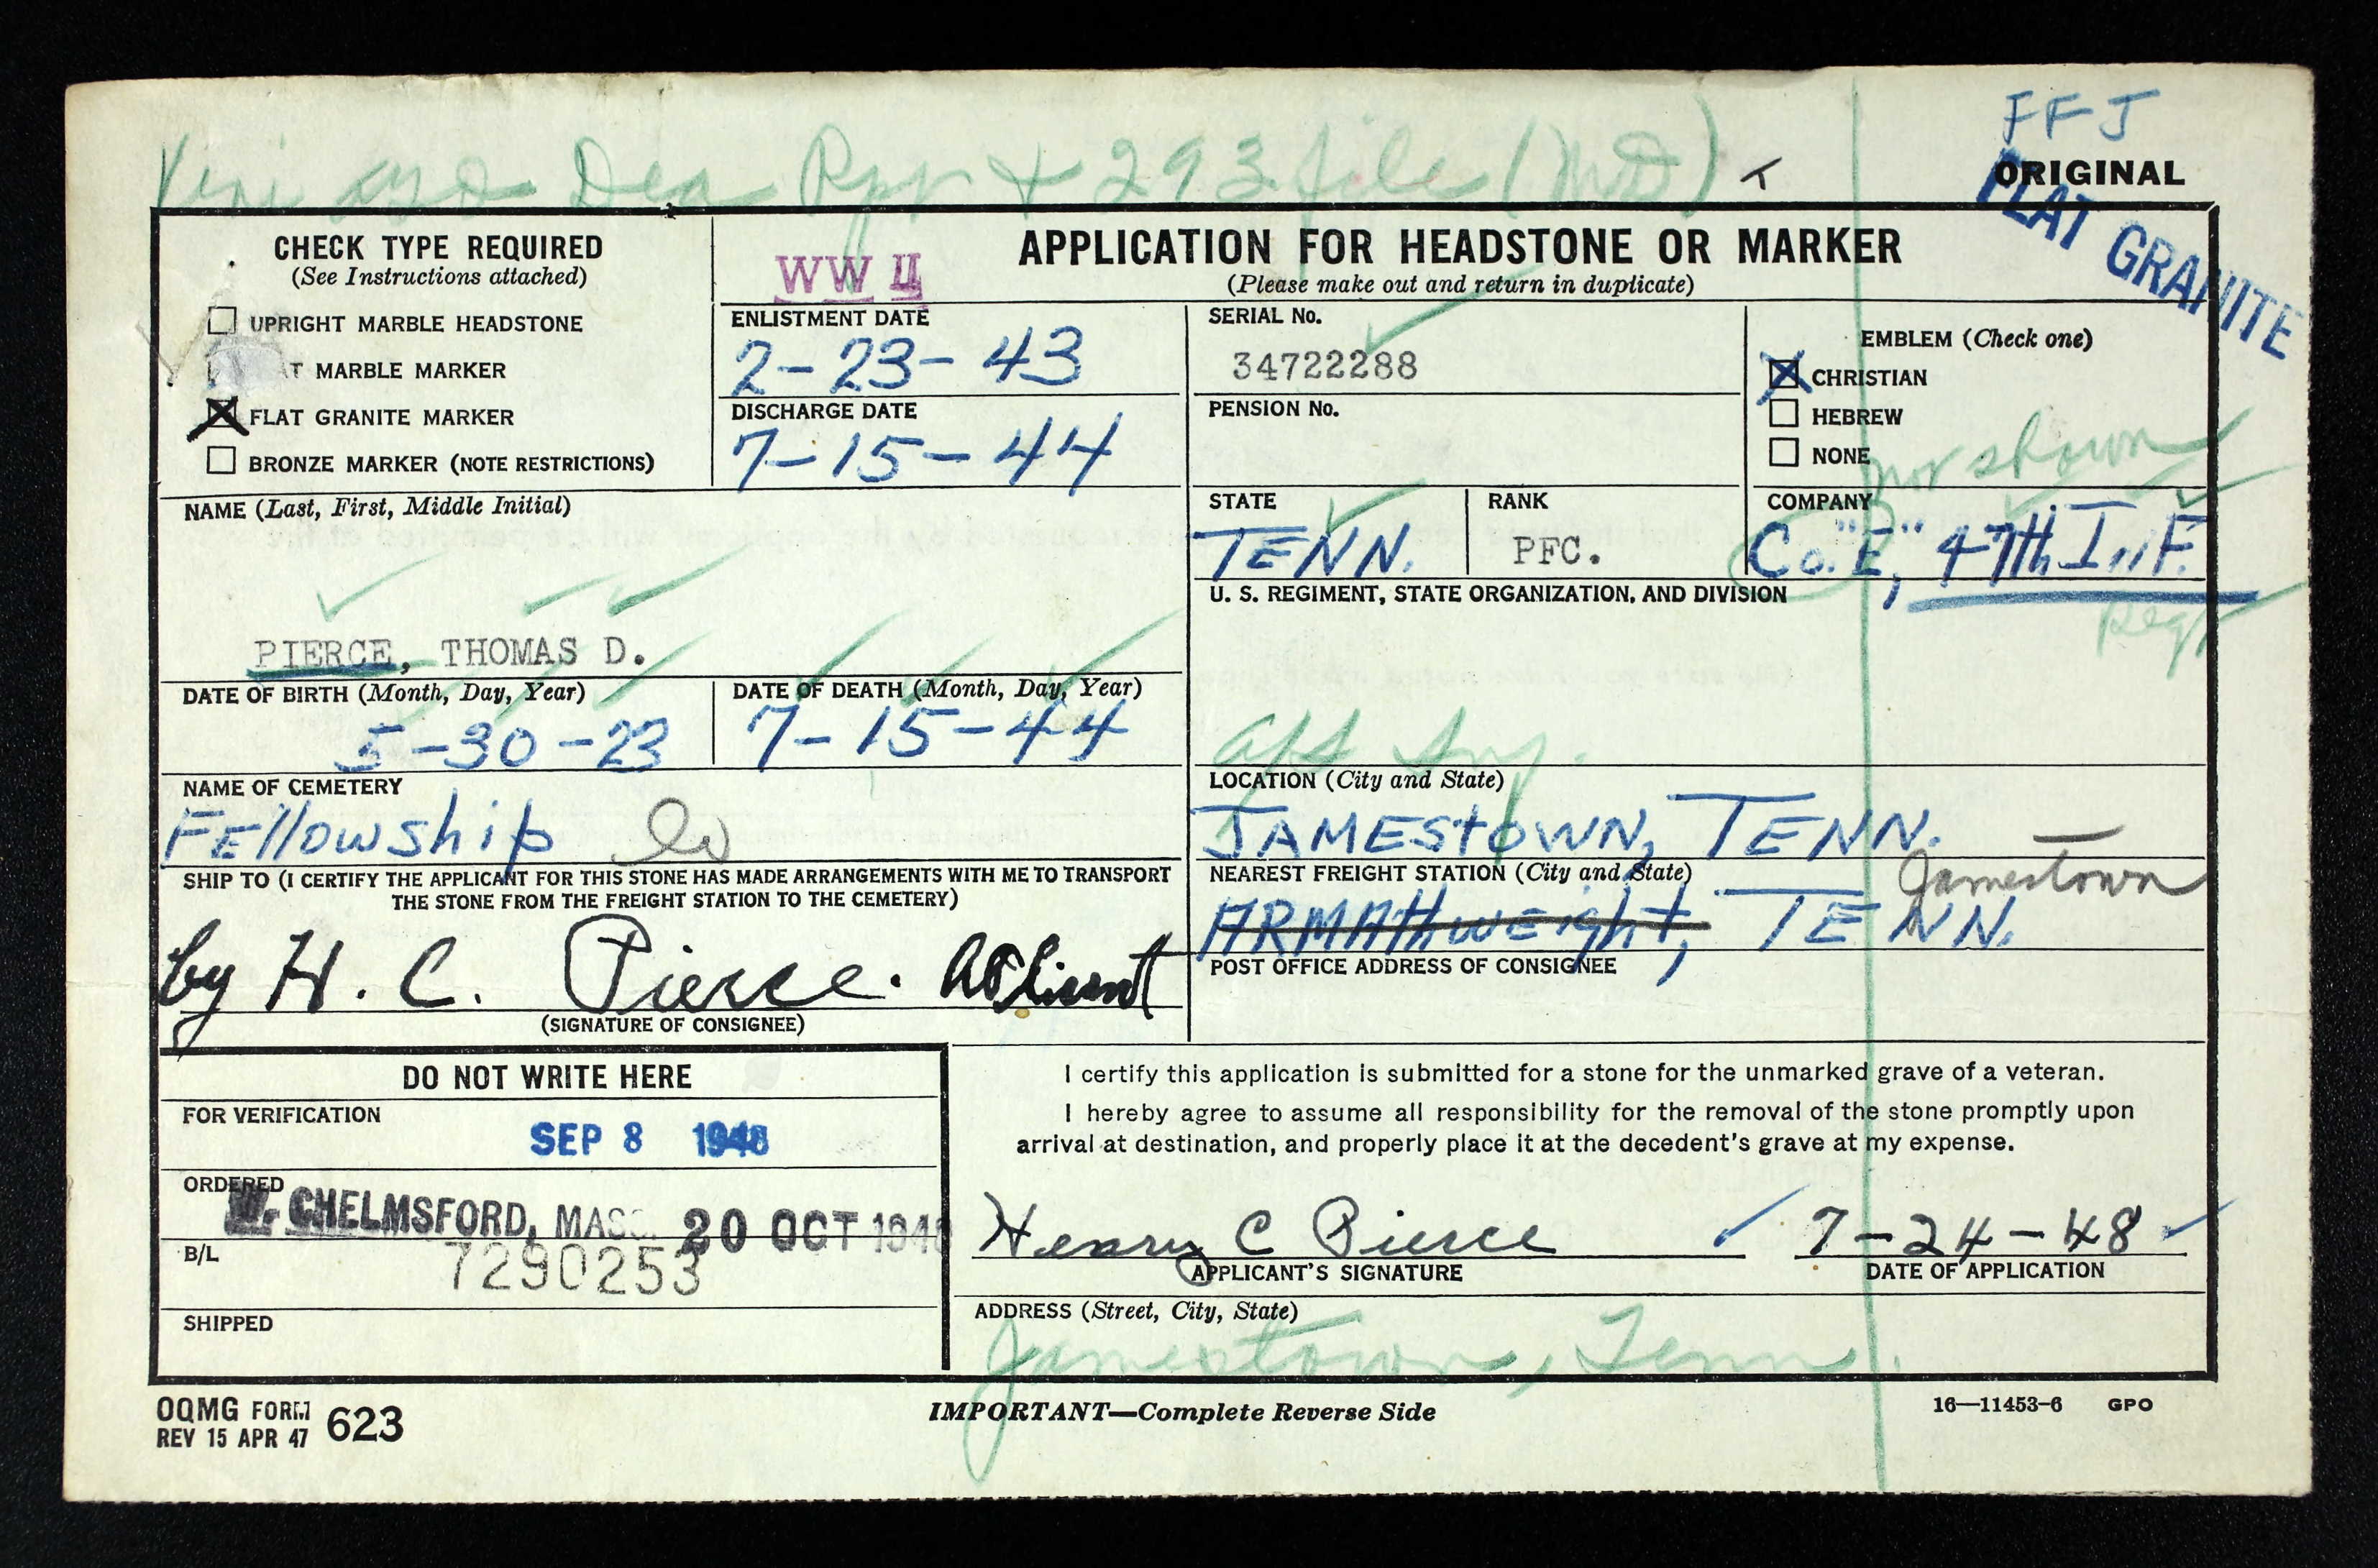 FFJ
ORIGINAL
FLAT GRANITE
293 file
CHECK TYPE REQUIRED
(See Instructions attached)
UPRIGHT MARBLE HEADSTONE
MARBLE MARKER
FLAT GRANITE MARKER
BRONZE MARKER (NOTE RESTRICTIONS)
WW II
APPLICATION FOR HEADSTONE OR MARKER
(Please make out and return in duplicate)
ENLISTMENT DATE
2-23-43
DISCHARGE DATE
7-15-44
SERIAL No.
34722288
PENSION No.
EMBLEM (Check one)
CHRISTIAN
HEBREW
NONE
not shown
NAME (Last, First, Middle Initial)
PIERCE, THOMAS D.
STATE
TENN.
RANK
PFC.
COMPANY
Co. "E", 47th Inf.
Regt
U. S. REGIMENT, STATE ORGANIZATION, AND DIVISION
DATE OF BIRTH (Month, Day, Year)
5-30-23
DATE OF DEATH (Month, Day, Year)
7-15-44
NAME OF CEMETERY
Fellowship
LOCATION (City and State)
JAMEStOWN, TENN.
SHIP TO (I CERTIFY THE APPLICANT FOR THIS STONE HAS MADE ARRANGEMENTS WITH ME TO TRANSPORT
THE STONE FROM THE FREIGHT STATION TO THE CEMETERY)
by H. C. Pierce.
(SIGNATURE OF CONSIGNEE)
NEAREST FREIGHT STATION (City and State)
Jamestown
ARMAthwEight, TENN.
POST OFFICE ADDRESS OF CONSIGNEE
DO NOT WRITE HERE
FOR VERIFICATION
SEP 8 1948
ORDERED
W. CHELMSFORD, MASS. 20 OCT 1948
B/L
7290253
SHIPPED
I certify this application is submitted for a stone for the unmarked grave of a veteran.
I hereby agree to assume all responsibility for the removal of the stone promptly upon
arrival at destination, and properly place it at the decedent's grave at my expense.
Henry C Pierce
APPLICANT'S SIGNATURE
7-24-48
DATE OF APPLICATION
ADDRESS (Street, City, State)
Jamestown, Tenn.
OQMG FORM 623
REV 15 APR 47
IMPORTANT—Complete Reverse Side
16—11453-6 GPO